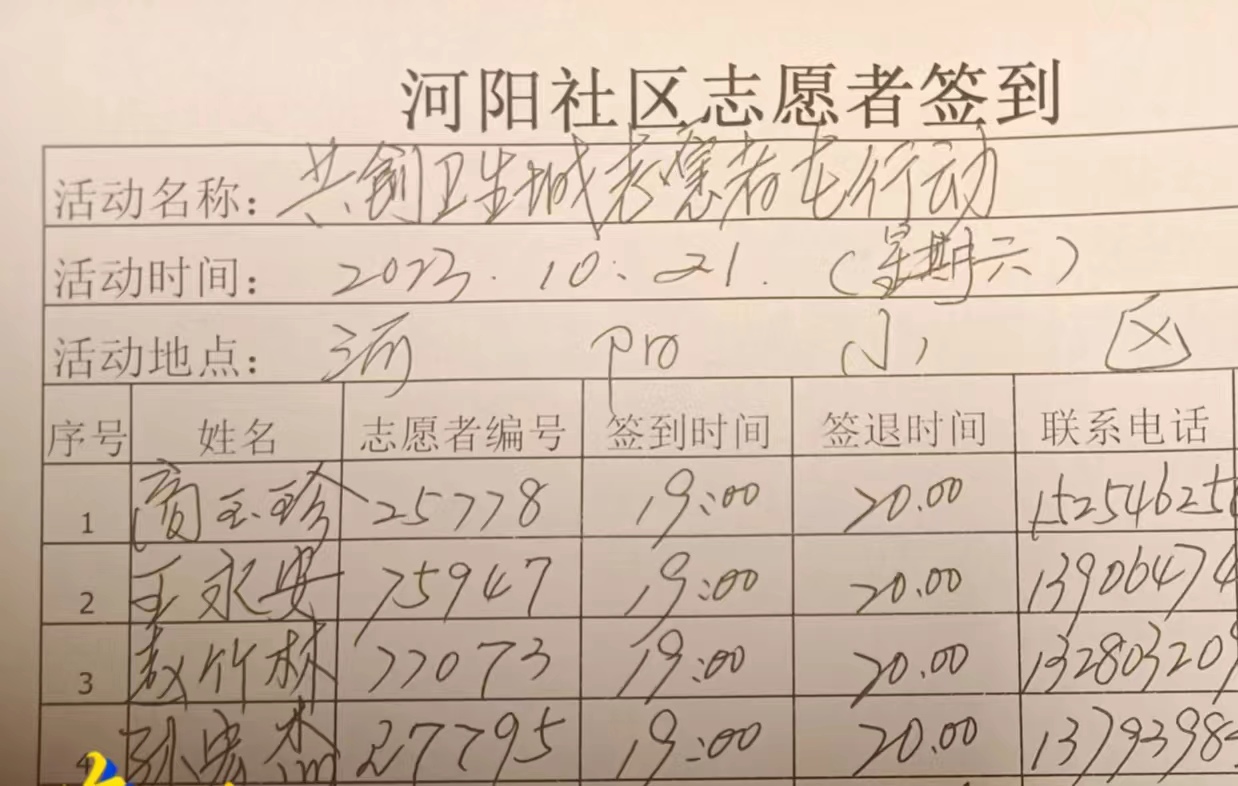 河阳社区志愿者签到
活动名称：共创卫生城志愿者在行动
活动时间：2023.10.21.（星期六）
活动地点：河 小 区
序号 姓名 志愿者编号 签到时间 签退时间 联系电话
1 商玉珍 25778 19:00 20.00 15254625
2 王永安 75947 19:00 20.00 13906474
3 赵竹林 77073 19:00 20.00 132803209
4 孙宏杰 27795 19:00 20.00 1379398